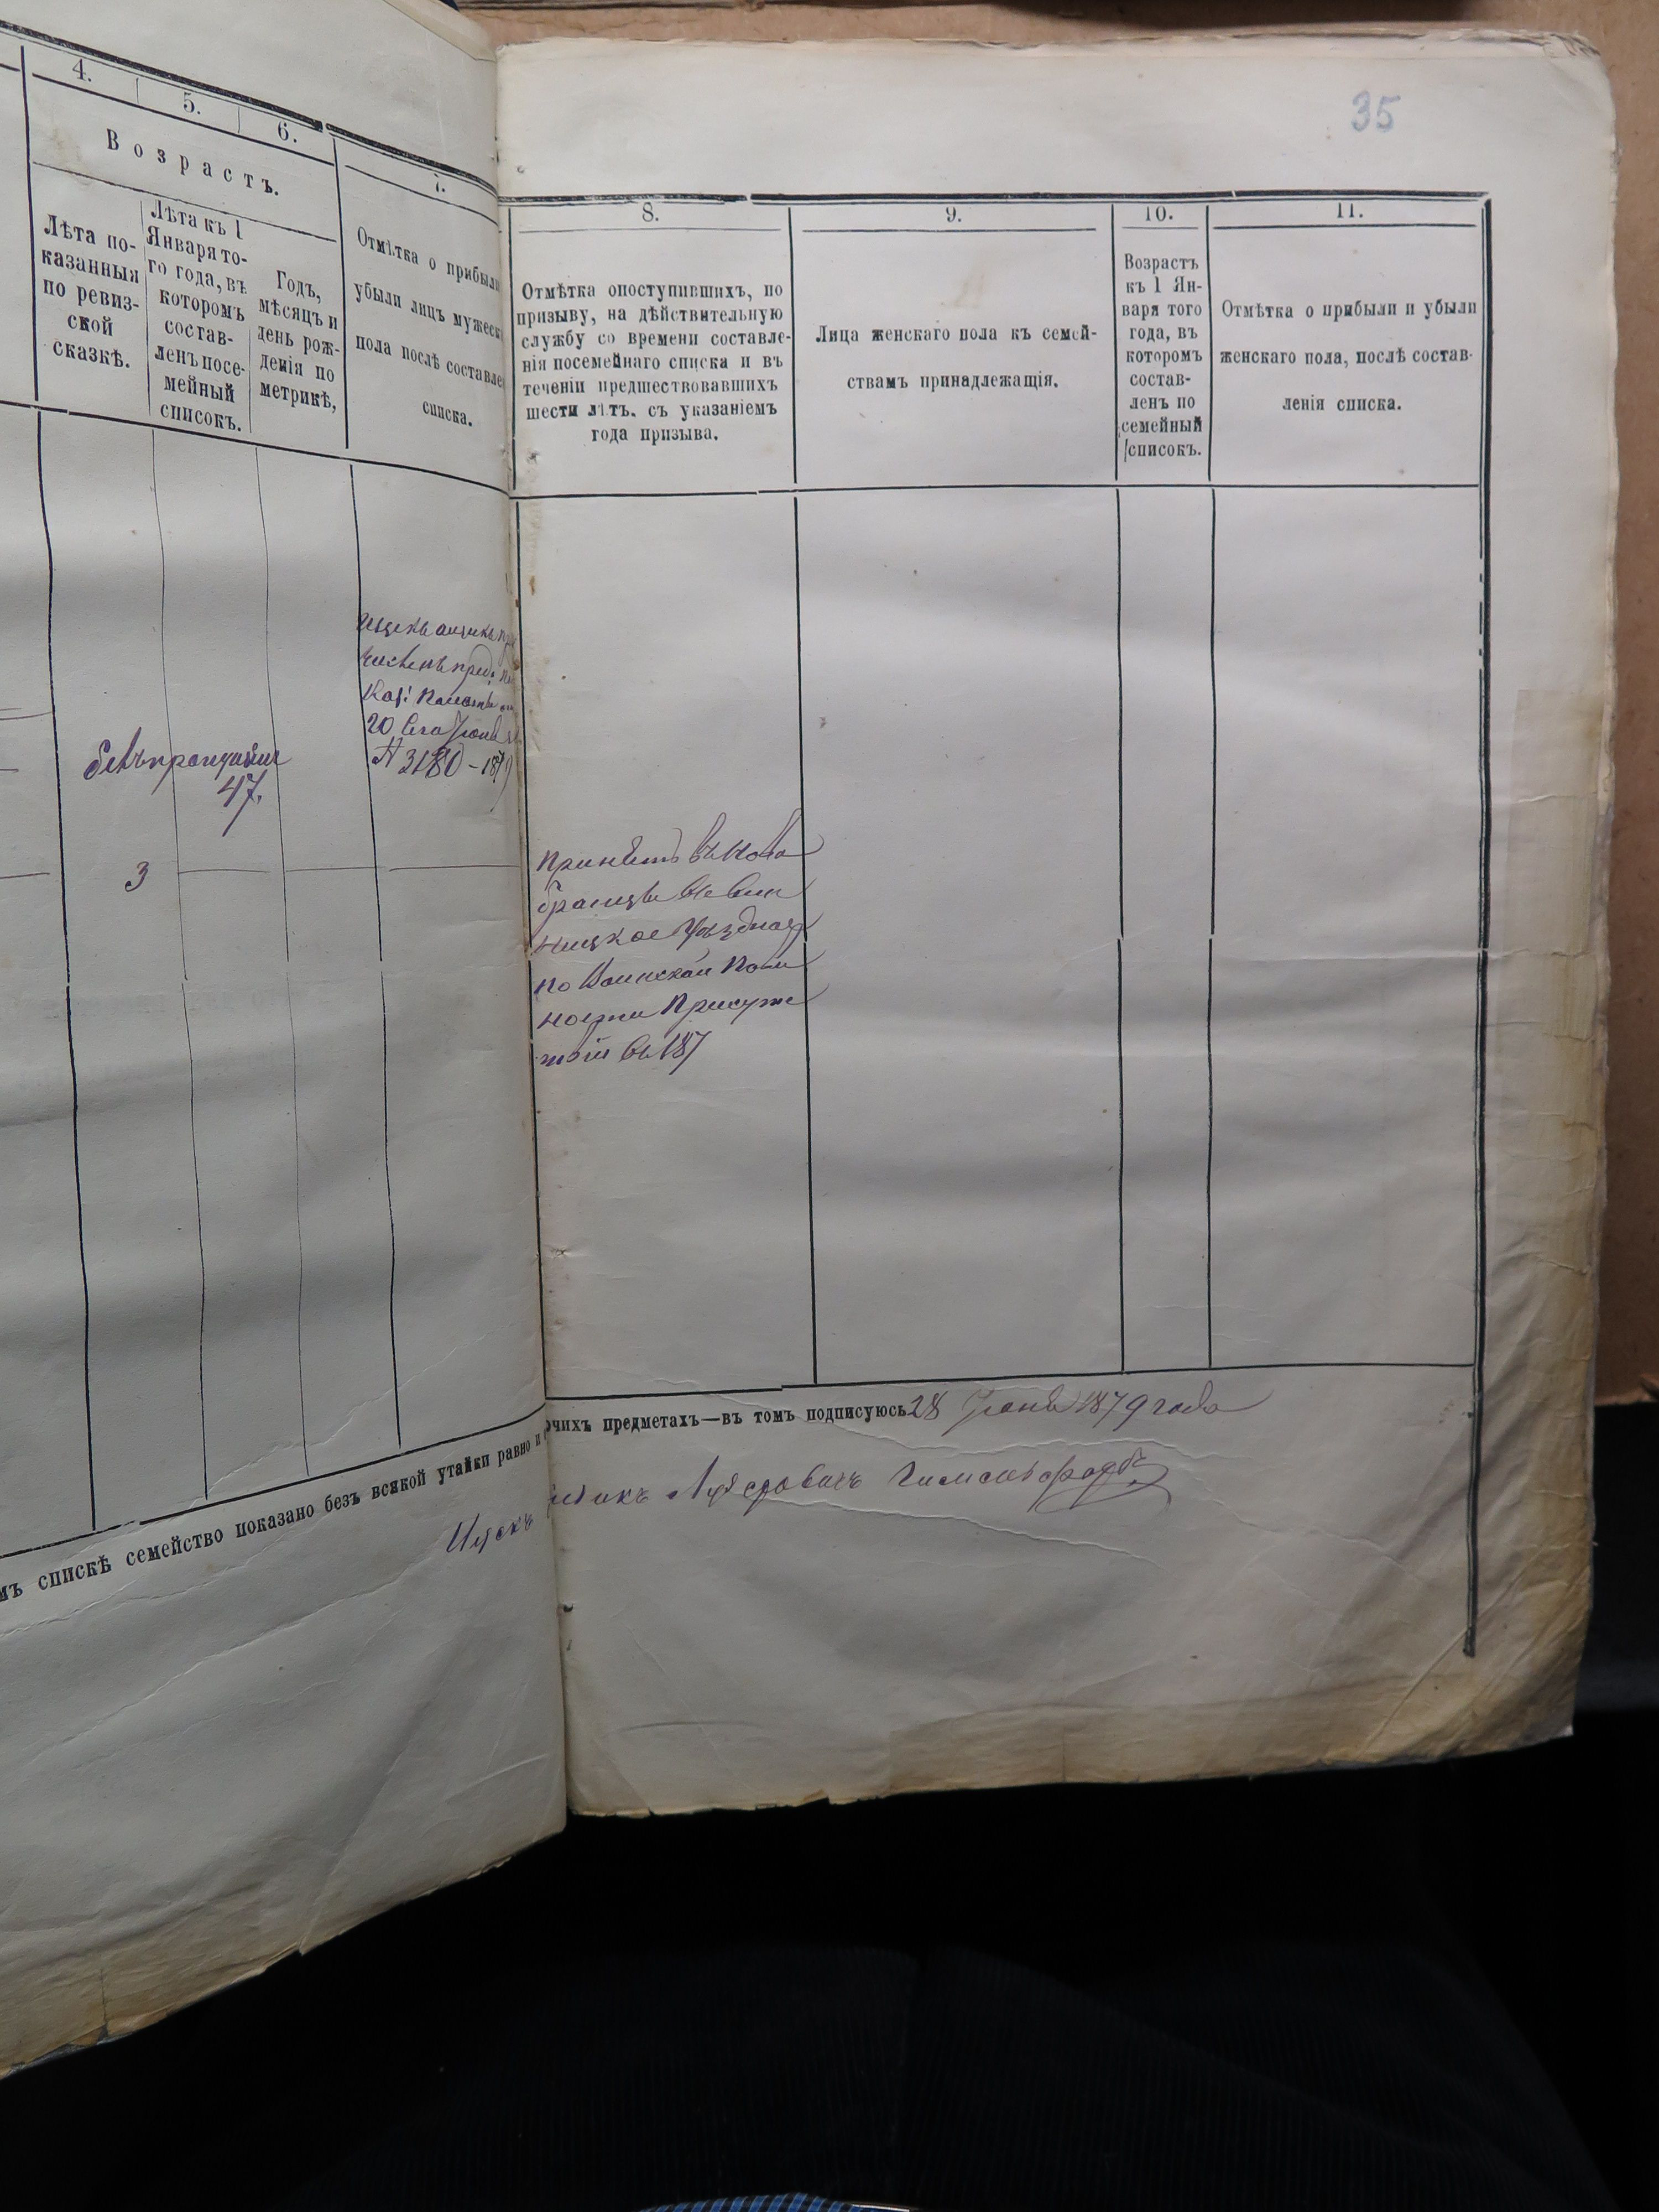 35
4.
5.
6.
Возрастъ.
Лѣта по-
казанныя
по ревиз-
ской
сказкѣ.
Лѣта къ 1
Января то-
го года, въ
которомъ
состав-
ленъ посе-
мейный
списокъ.
Годъ,
мѣсяцъ и
день рож-
денія по
метрикѣ,
7.
Отмѣтка о прибыли
убыли лицъ мужеск
пола послѣ составле
списка.
20
№ 3180 – 1879
47.
3
8.
Отмѣтка опоступившихъ, по
призыву, на дѣйствительную
службу со времени составле-
нія посемейнаго списка и въ
теченіи предшествовавшихъ
шести лѣтъ. съ указаніемъ
года призыва.
9.
Лица женскаго пола къ семей-
ствамъ принадлежащія.
10.
Возрастъ
къ 1 Ян-
варя того
года, въ
которомъ
состав-
ленъ по
семейный
списокъ.
11.
Отмѣтка о прибыли и убыли
женскаго пола, послѣ состав-
ленія списка.
Принятъ въ Ново
бранцы въ Вин
ницкое Уѣздное
по Воинской Повин
ности Присутс
въ 187
мъ спискѣ семейство показано безъ всякой утайки равно и
очихъ предметахъ—въ томъ подписуюсь 28 Іюня 1879 года
Ицекъ